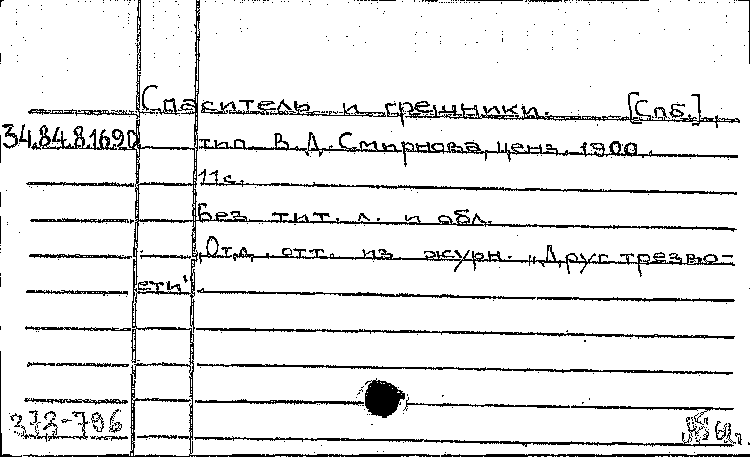 Спаситель и грешники. [Спб.],
34.84.8.1690 тип. В.Д. Смирнова, ценз. 1900.
11с.
Без тит. л. и обл.
Отд. отт. из журн. „Друг трезво-
сти".
373-796